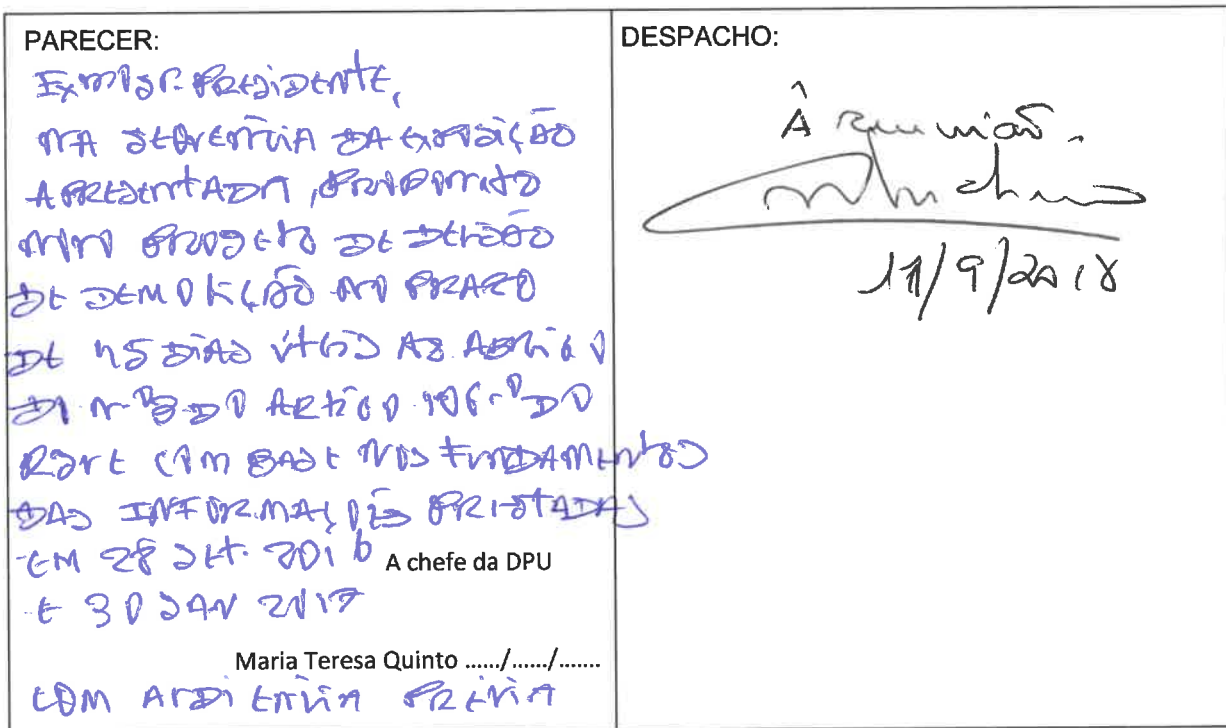 PARECER:
Exmo Sr. Presidente,
na sequência da exposição
apresentada, proponho
novo projeto de decisão
de demolição no prazo
de 45 dias úteis ao abrigo
do n.º 3 do artigo 106.º do
RJUE com base nos fundamentos
das informações prestadas
em 28 set. 2016
A chefe da DPU
e 30 JAN 2017
Maria Teresa Quinto ....../....../.......
com audiência prévia
DESPACHO:
À reunião.
11/9/2018